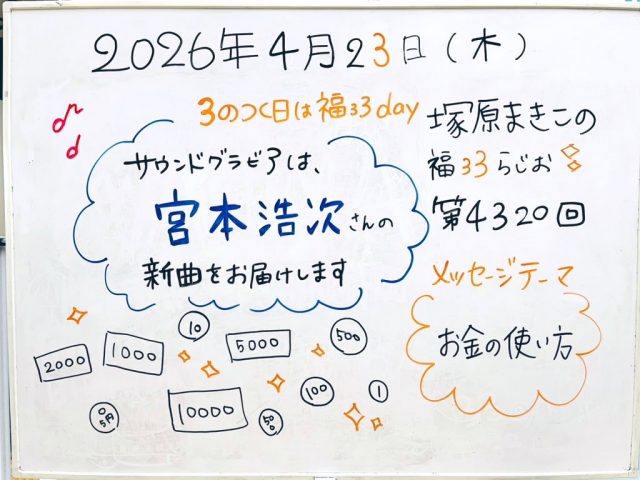 2026年4月23日(木)
3のつく日は福33day
塚原まきこの
福33らじお
第4320回
サウンドグラビアは、
宮本浩次さんの
新曲をお届けします
メッセージテーマ
お金の使い方
2000
1000
10
5000
500
10000
100
1
5円
50